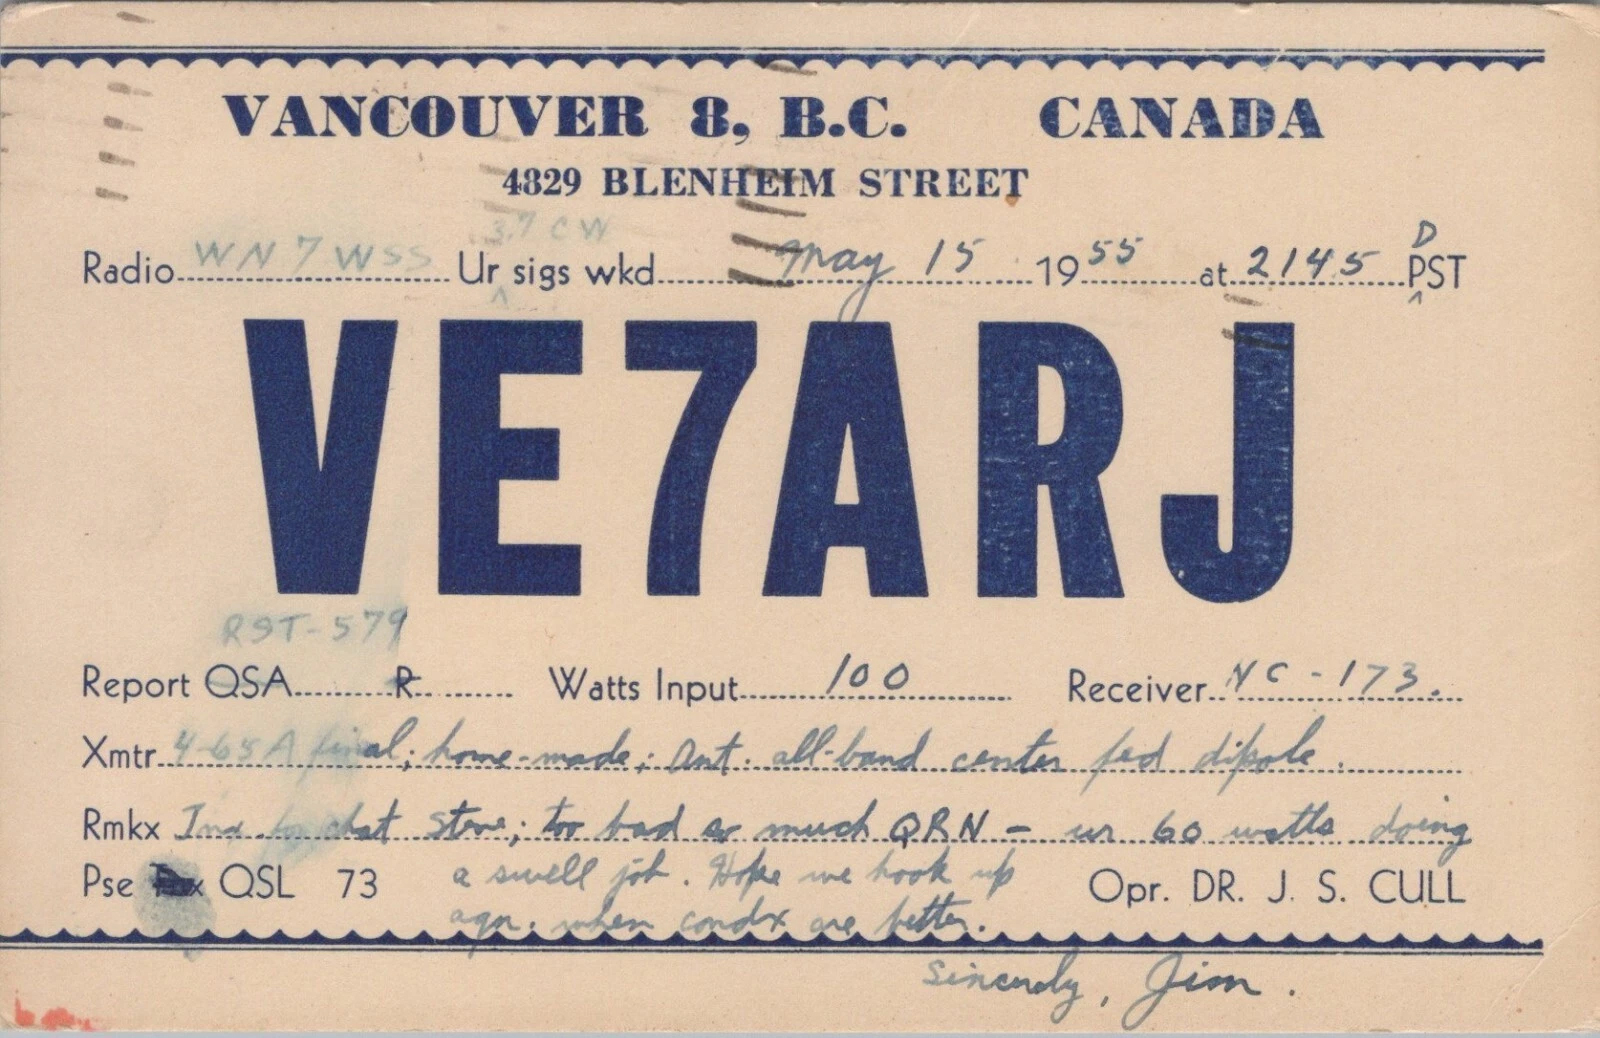 VANCOUVER 8, B.C. CANADA
4829 BLENHEIM STREET
3.7 CW
Radio WN7WSS Ur sigs wkd May 15 1955 at 2145 PDST
VE7ARJ
RST-579
Report QSA R Watts Input 100 Receiver NC-173.
Xmtr 4-65A final; home-made; Ant. all-band center fed dipole.
Rmkx Tnx for chat Steve; too bad so much QRN - ur 60 watts doing
Pse QSL 73 a swell job. Hope we hook up Opr. DR. J. S. CULL
agn. when condx are better.
Sincerely, Jim.